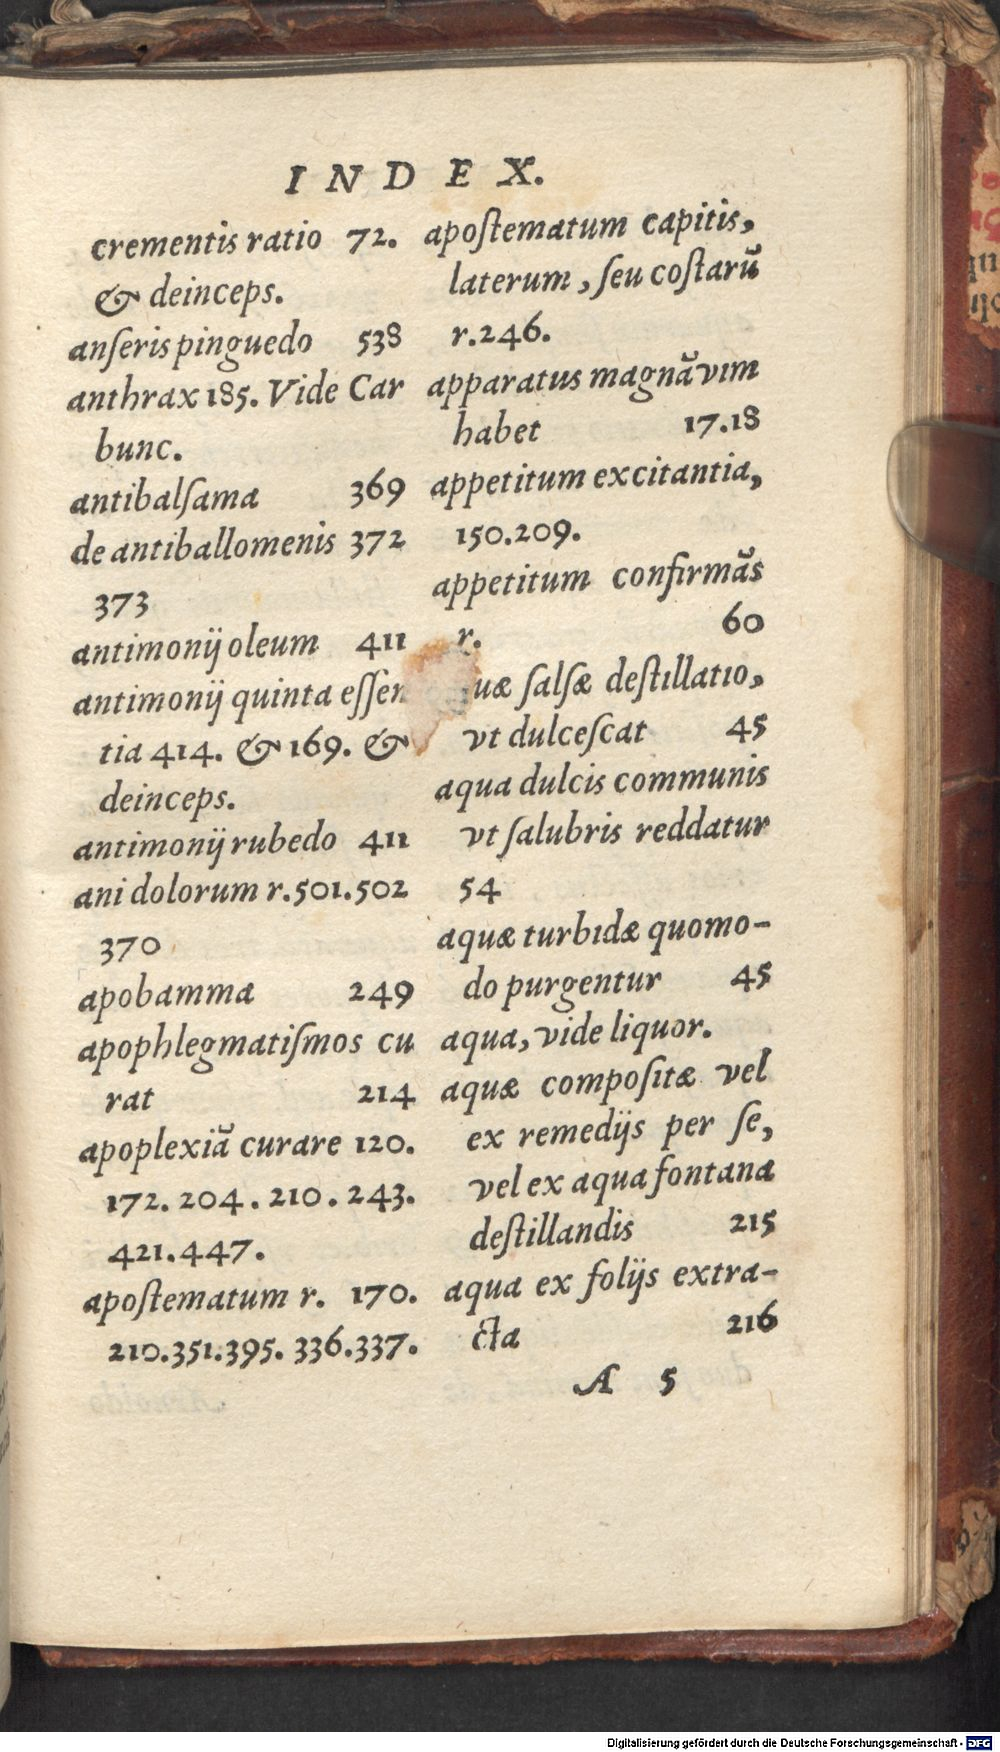 INDEX.
crementis ratio 72.
& deinceps.
anſeris pinguedo 538
anthrax 185. Vide Car
bunc.
antibalſama 369
de antiballomenis 372
373
antimonij oleum 411
antimonij quinta eſſen
tia 414. & 169. &
deinceps.
antimonij rubedo 411
ani dolorum r.501.502
370
apobamma 249
apophlegmatiſmos cu
rat 214
apoplexiã curare 120.
172. 204. 210. 243.
421.447.
apoſtematum r. 170.
210.351.395. 336.337.
apoſtematum capitis,
laterum, ſeu coſtarũ
r.246.
apparatus magnã vim
habet 17.18
appetitum excitantia,
150.209.
appetitum confirmãs
r. 60
ſalſæ deſtillatio,
vt dulceſcat 45
aqua dulcis communis
vt ſalubris reddatur
54
aquæ turbidæ quomo-
do purgentur 45
aqua, vide liquor.
aquæ compoſitæ vel
ex remedijs per ſe,
vel ex aqua fontana
deſtillandis 215
aqua ex folijs extra-
cta 216
A 5
Digitalisierung gefördert durch die Deutsche Forschungsgemeinschaft - DFG